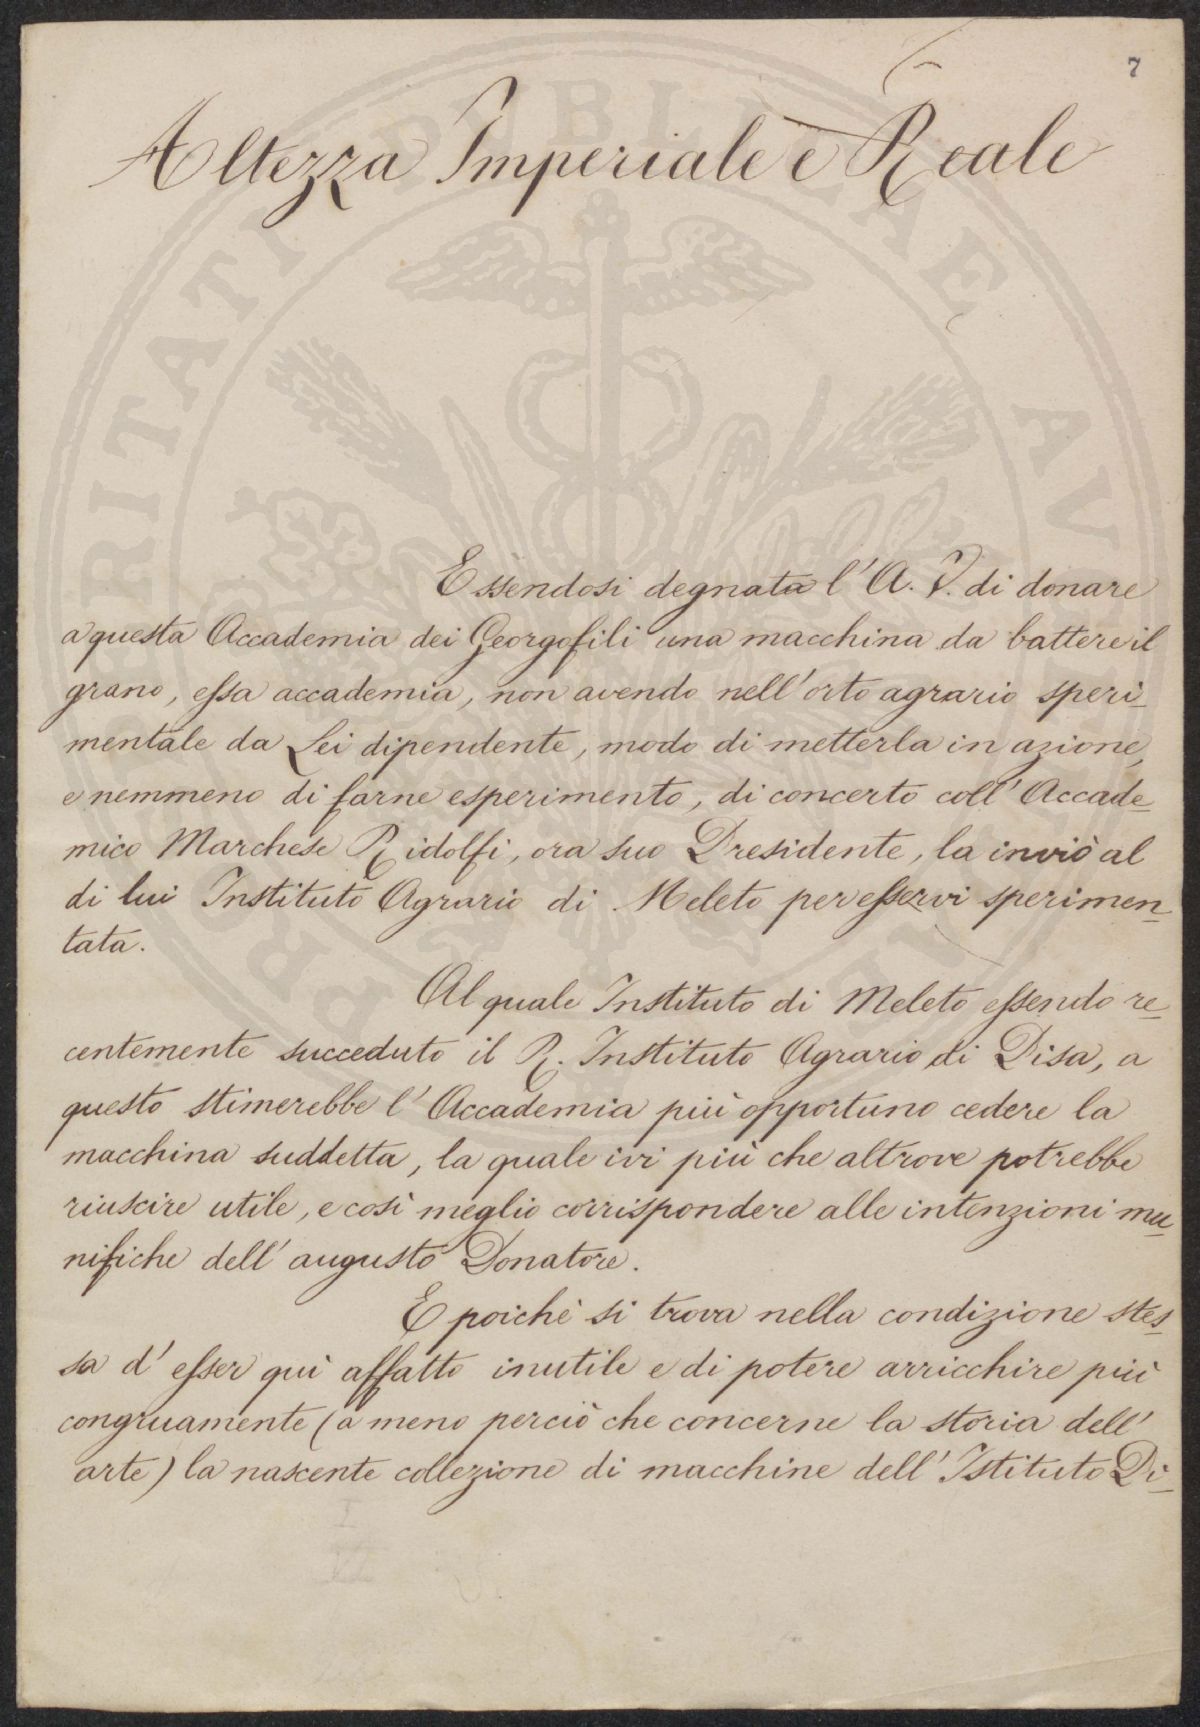 7
Altezza Imperiale e Reale
Essendosi degnata l'A. V. di donare
a questa Accademia dei Georgofili una macchina da battere il
grano, essa accademia, non avendo nell'orto agrario speri-
mentale da Lei dipendente, modo di metterla in azione,
e nemmeno di farne esperimento, di concerto coll'Accade-
mico Marchese Ridolfi, ora suo Presidente, la inviò al
di lui Instituto Agrario di Meleto per esservi sperimen-
tata.
Al quale Instituto di Meleto essendo re-
centemente succeduto il R. Instituto Agrario di Pisa, a
questo stimerebbe l'Accademia più opportuno cedere la
macchina suddetta, la quale ivi più che altrove potrebbe
riuscire utile, e così meglio corrispondere alle intenzioni mu-
nifiche dell'augusto Donatore.
E poichè si trova nella condizione stes-
sa d'esser quì affatto inutile e di potere arricchire più
congruamente (a meno perciò che concerne la storia dell'
arte) la nascente collezione di macchine dell'Istituto Pi-